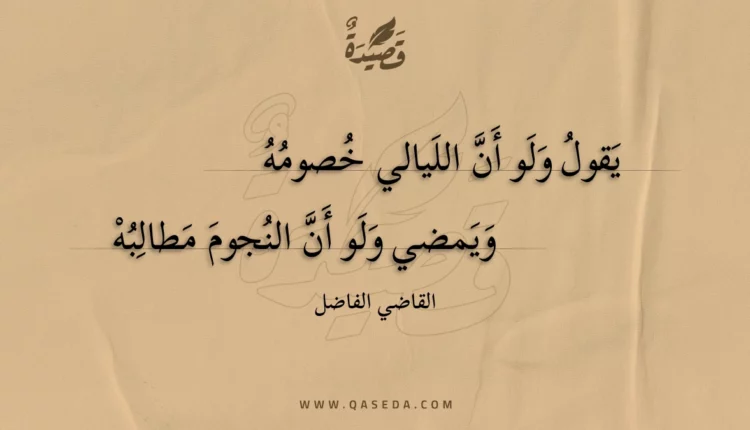 قَصِيدَةٌ
يَقولُ وَلَو أَنَّ اللَيالي خُصومُهُ
وَيَمضي وَلَو أَنَّ النُجومَ مَطالِبُهْ
القاضي الفاضل
WWW.QASEDA.COM